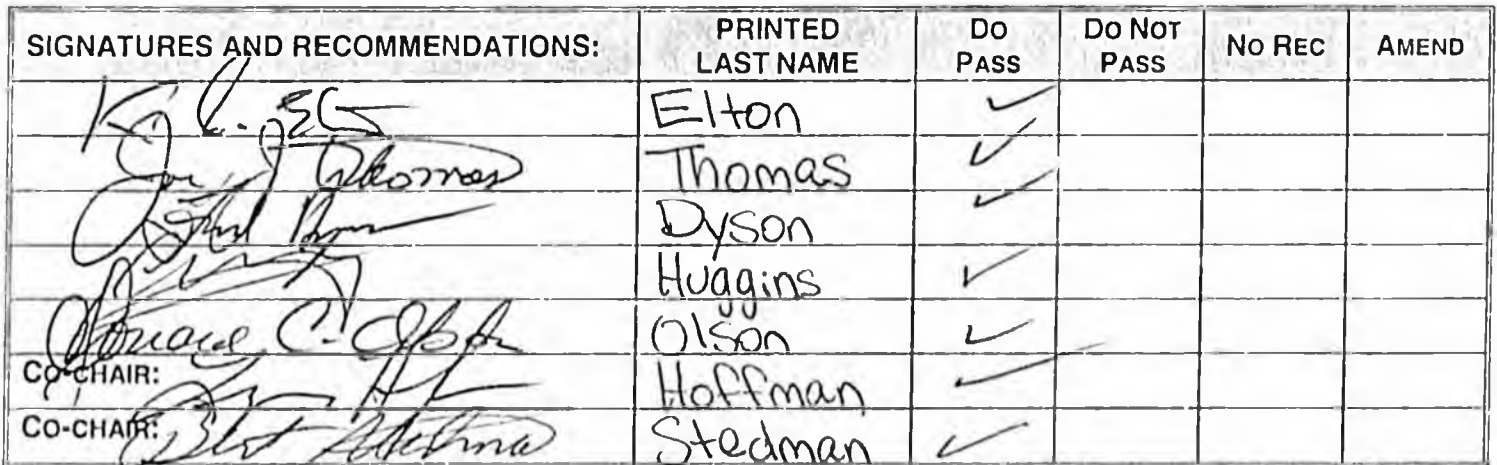 SIGNATURES AND RECOMMENDATIONS: PRINTED LAST NAME DO PASS DO NOT PASS NO REC AMEND
Elton ✓
Thomas Thomas ✓
Dyson ✓
Huggins ✓
Donald C. Olson Olson ✓
CO-CHAIR: Hoffman ✓
CO-CHAIR: Bert Stedman Stedman ✓